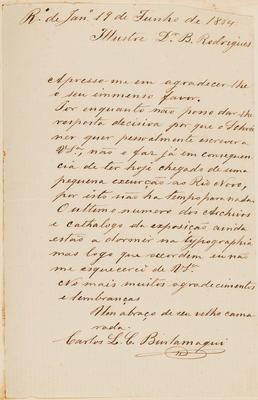 Rº. de Janº 19 de Junho de 1884
Illustre Dr. B. Rodrigues
Apresso-me em agradecer-lhe
o seu immenso favor.
Por enquanto não posso dar-lhe
resposta decisiva por que o Schrei
ner quer pessoalmente escrever a
V. Sª., não o faz já em consequen
cia de ter hoje chegado de uma
pequena excursão ao Rio Novo,
por isto não ha tempo para nada.
O ultimo numero dos Archivos
e cathalogo da exposição ainda
estão a dormir na typographia
mas logo que accordem eu não
me esquecerei de V. Sª.
No mais muitos agradecimentos
e lembranças
Um abraço de seu velho cama
rada
Carlos L. C. Burlamaqui